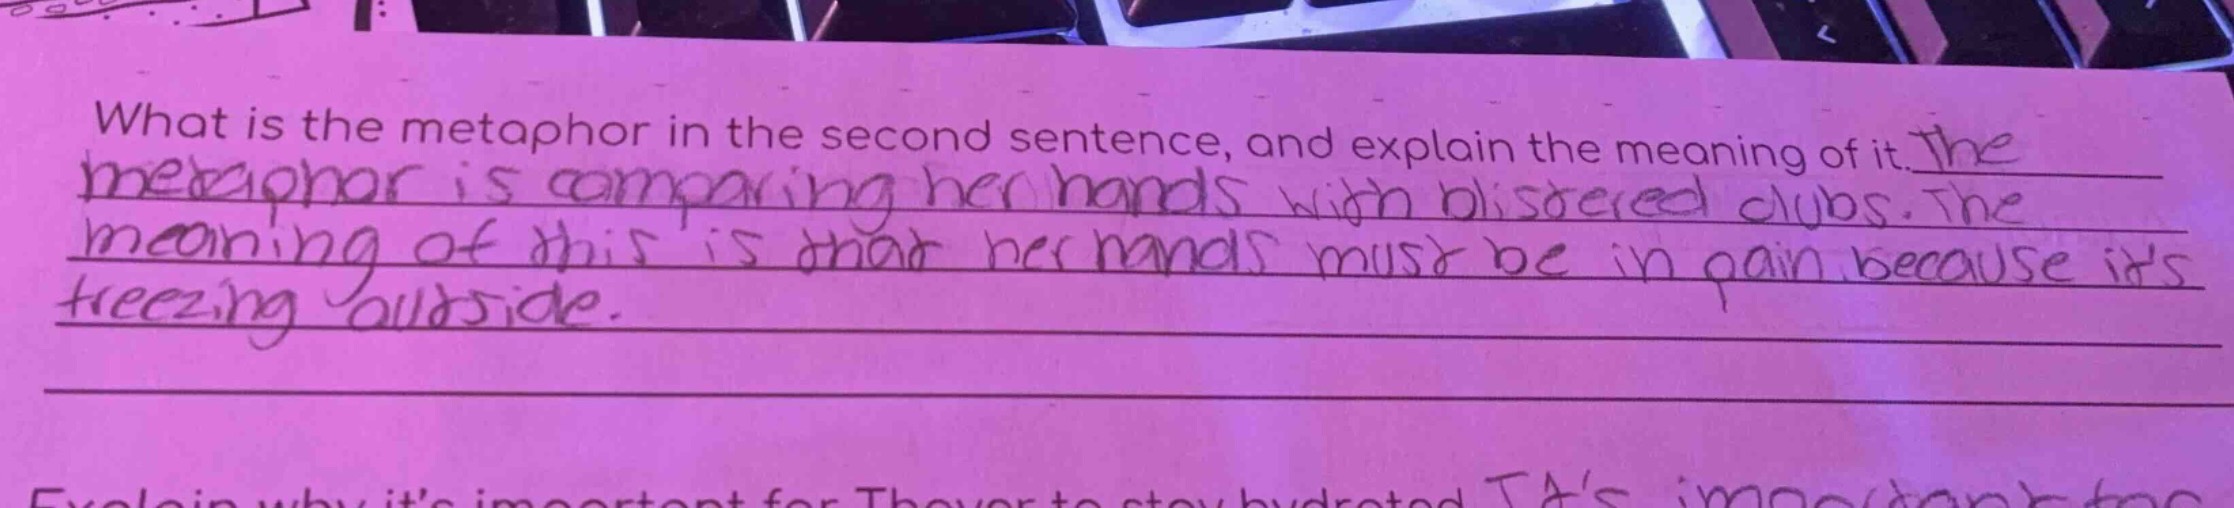 What is the metaphor in the second sentence, and explain the meaning of it. The
metaphor is comparing her hands with blistered clubs. The
meaning of this is that her hands must be in pain because it's
freezing outside.
Explain why it's important for Thayer to stay hydrated. It's important for